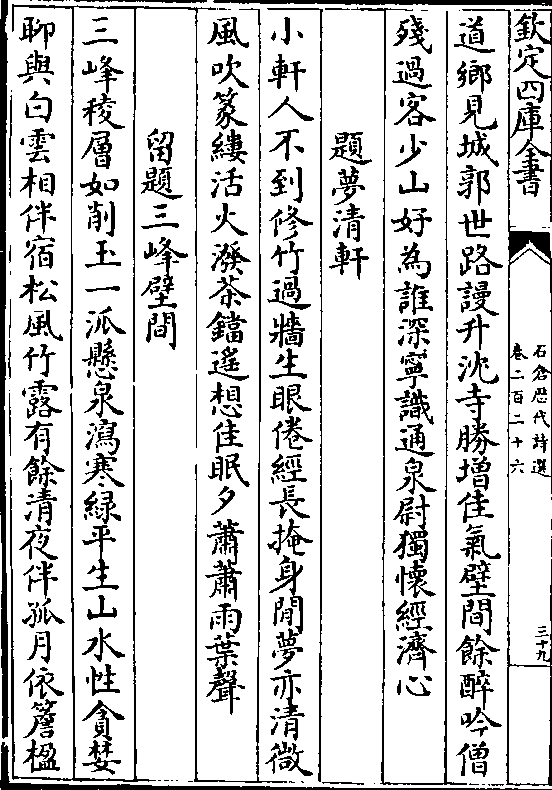 欽定四庫全書
石倉歴代詩選
卷二百二十六
三十九
道鄉見城郭世路謾升沈寺勝增佳氣壁間餘醉吟僧
殘過客少山好為誰深寧識通泉尉獨懷經濟心
題夢清軒
小軒人不到修竹過牆生眼倦經長掩身閒夢亦清微
風吹篆縷活火潑茶鐺遙想佳眠夕蕭蕭雨葉聲
留題三峰壁間
三峰稜層如削玉一泒懸泉瀉寒緑平生山水性貪婪
聊與白雲相伴宿松風竹露有餘清夜伴孤月依簷楹